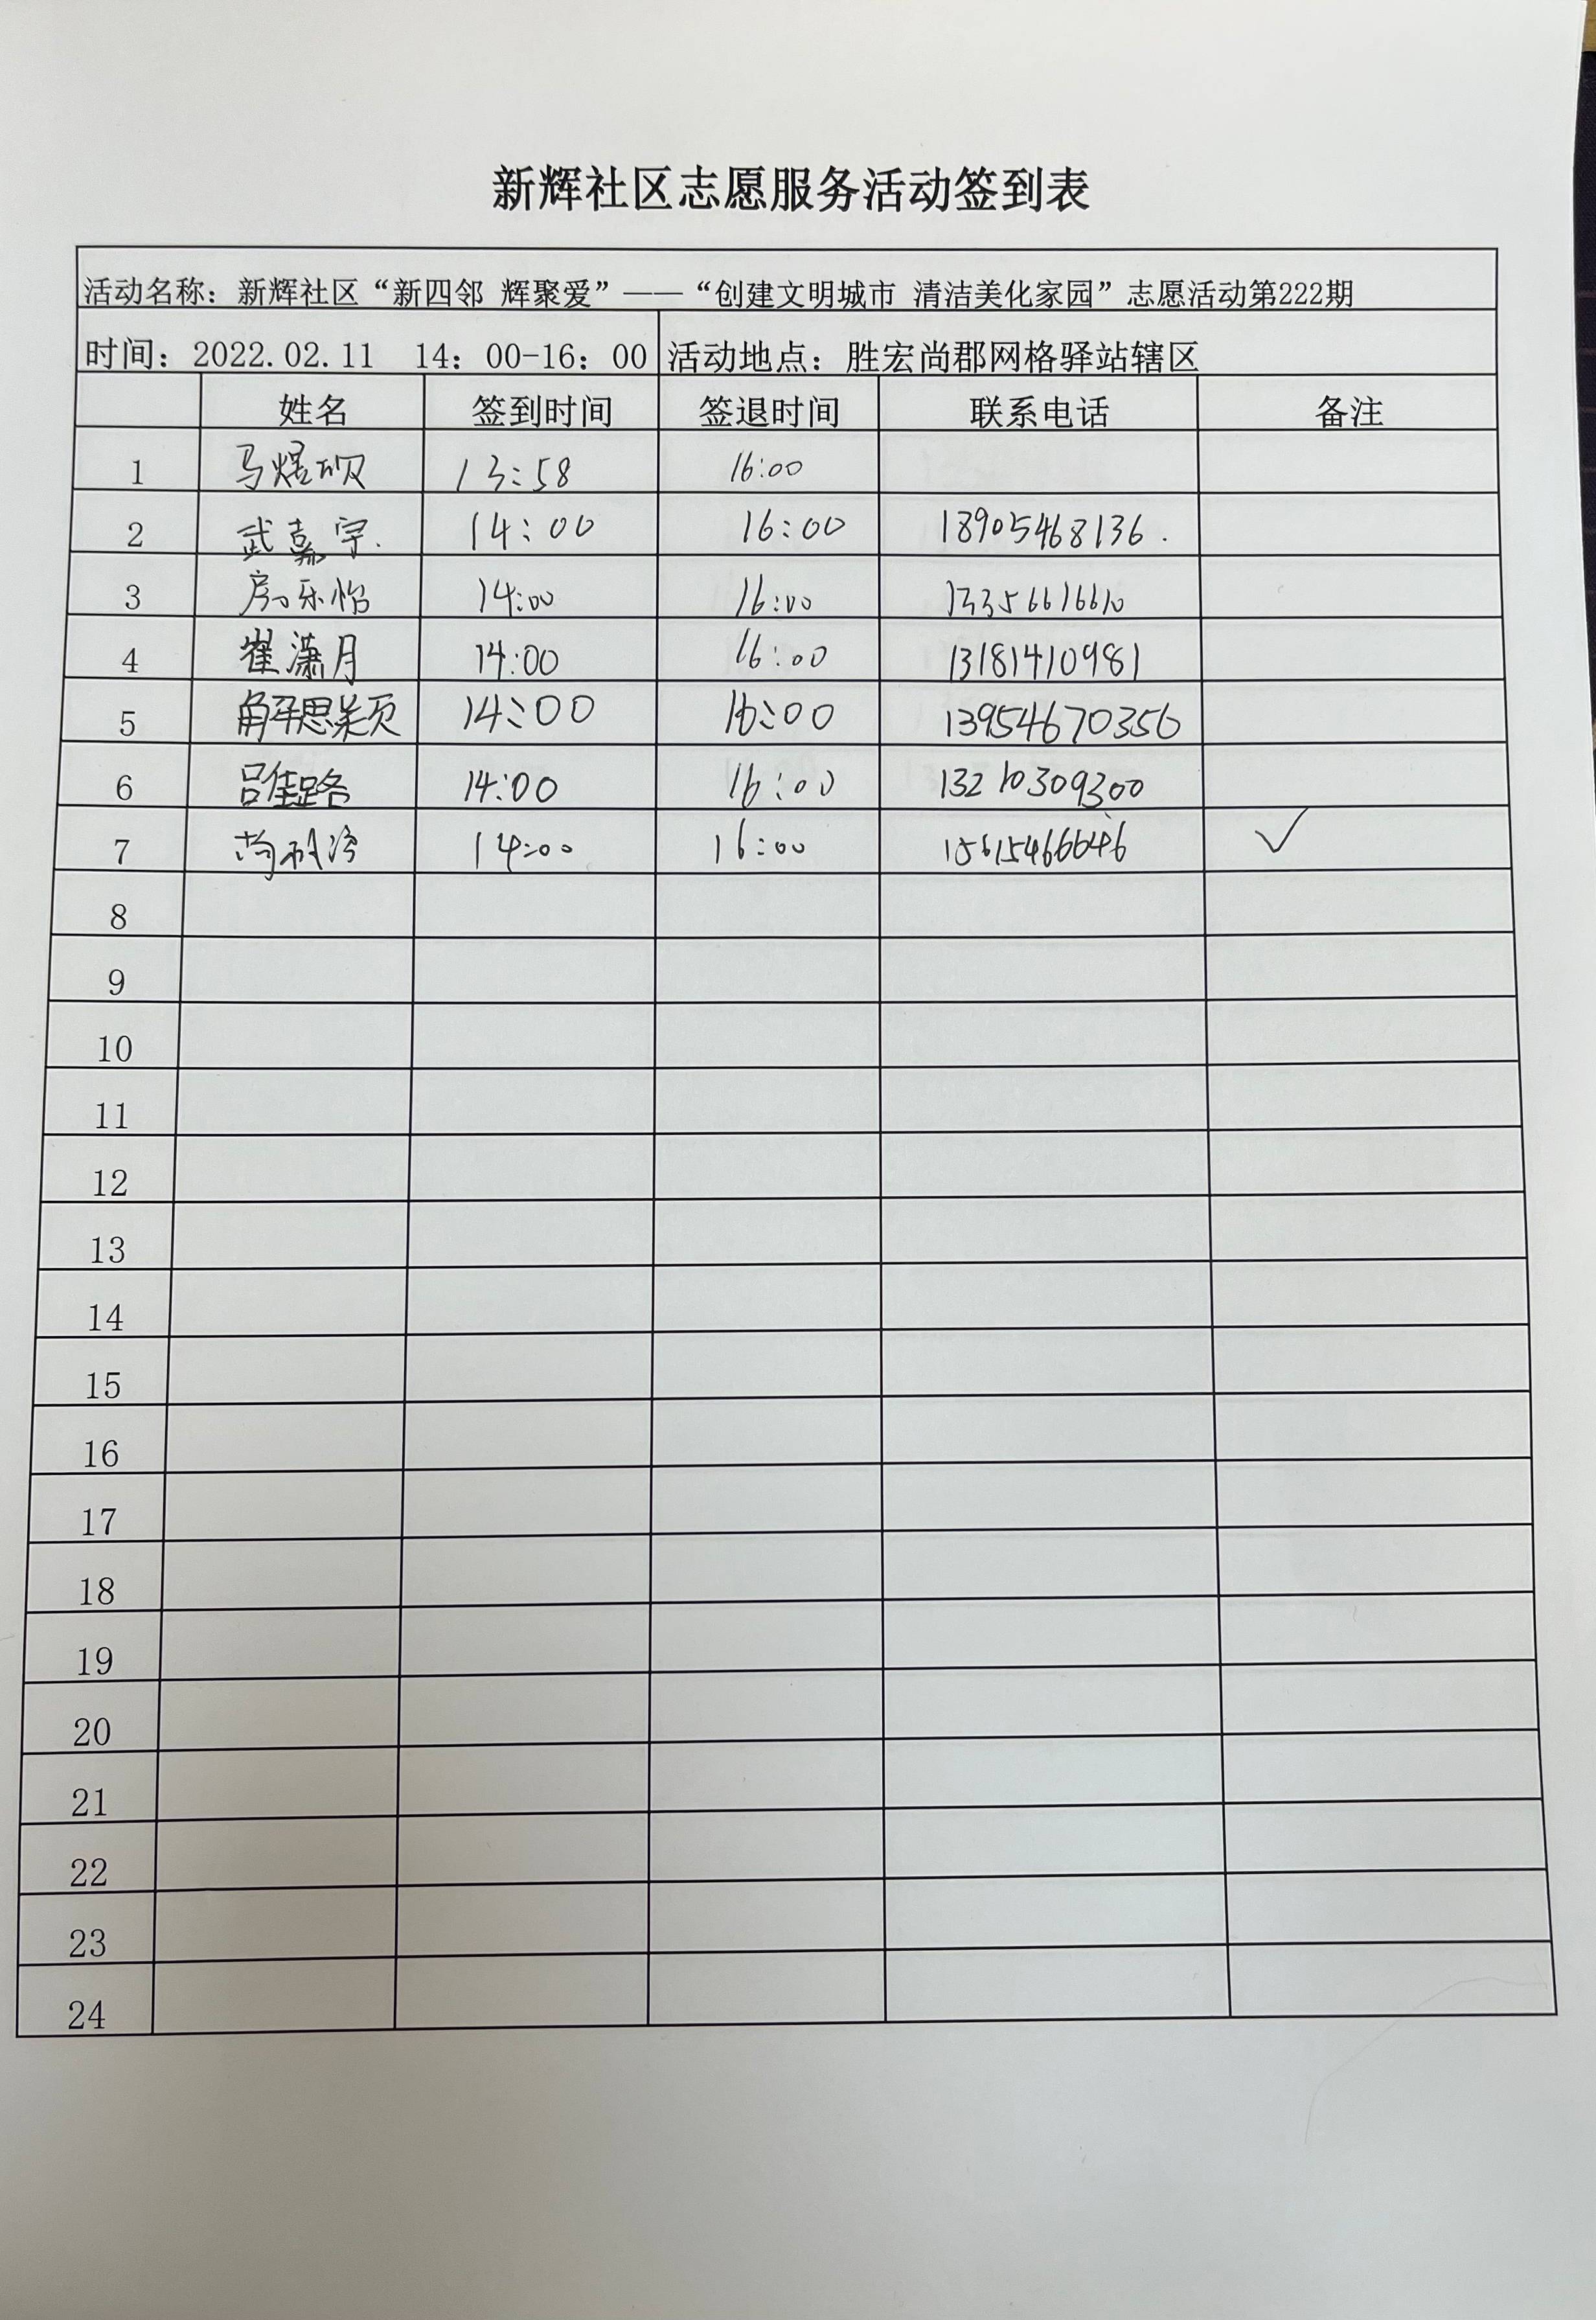 新辉社区志愿服务活动签到表
活动名称：新辉社区“新四邻 辉聚爱”——“创建文明城市 清洁美化家园”志愿活动第222期
时间：2022.02.11 14：00-16：00 活动地点：胜宏尚郡网格驿站辖区
姓名 签到时间 签退时间 联系电话 备注
1 马煜 13:58 16:00
2 武嘉宇. 14:00 16:00 18905468136.
3 房乐怡 14:00 16:00 13356616610
4 崔潇月 14:00 16:00 13181410981
5 解思 14:00 16:00 13954670356
6 吕佳璐 14:00 16:00 13210309300
7 14:00 16:00 ✓
8
9
10
11
12
13
14
15
16
17
18
19
20
21
22
23
24